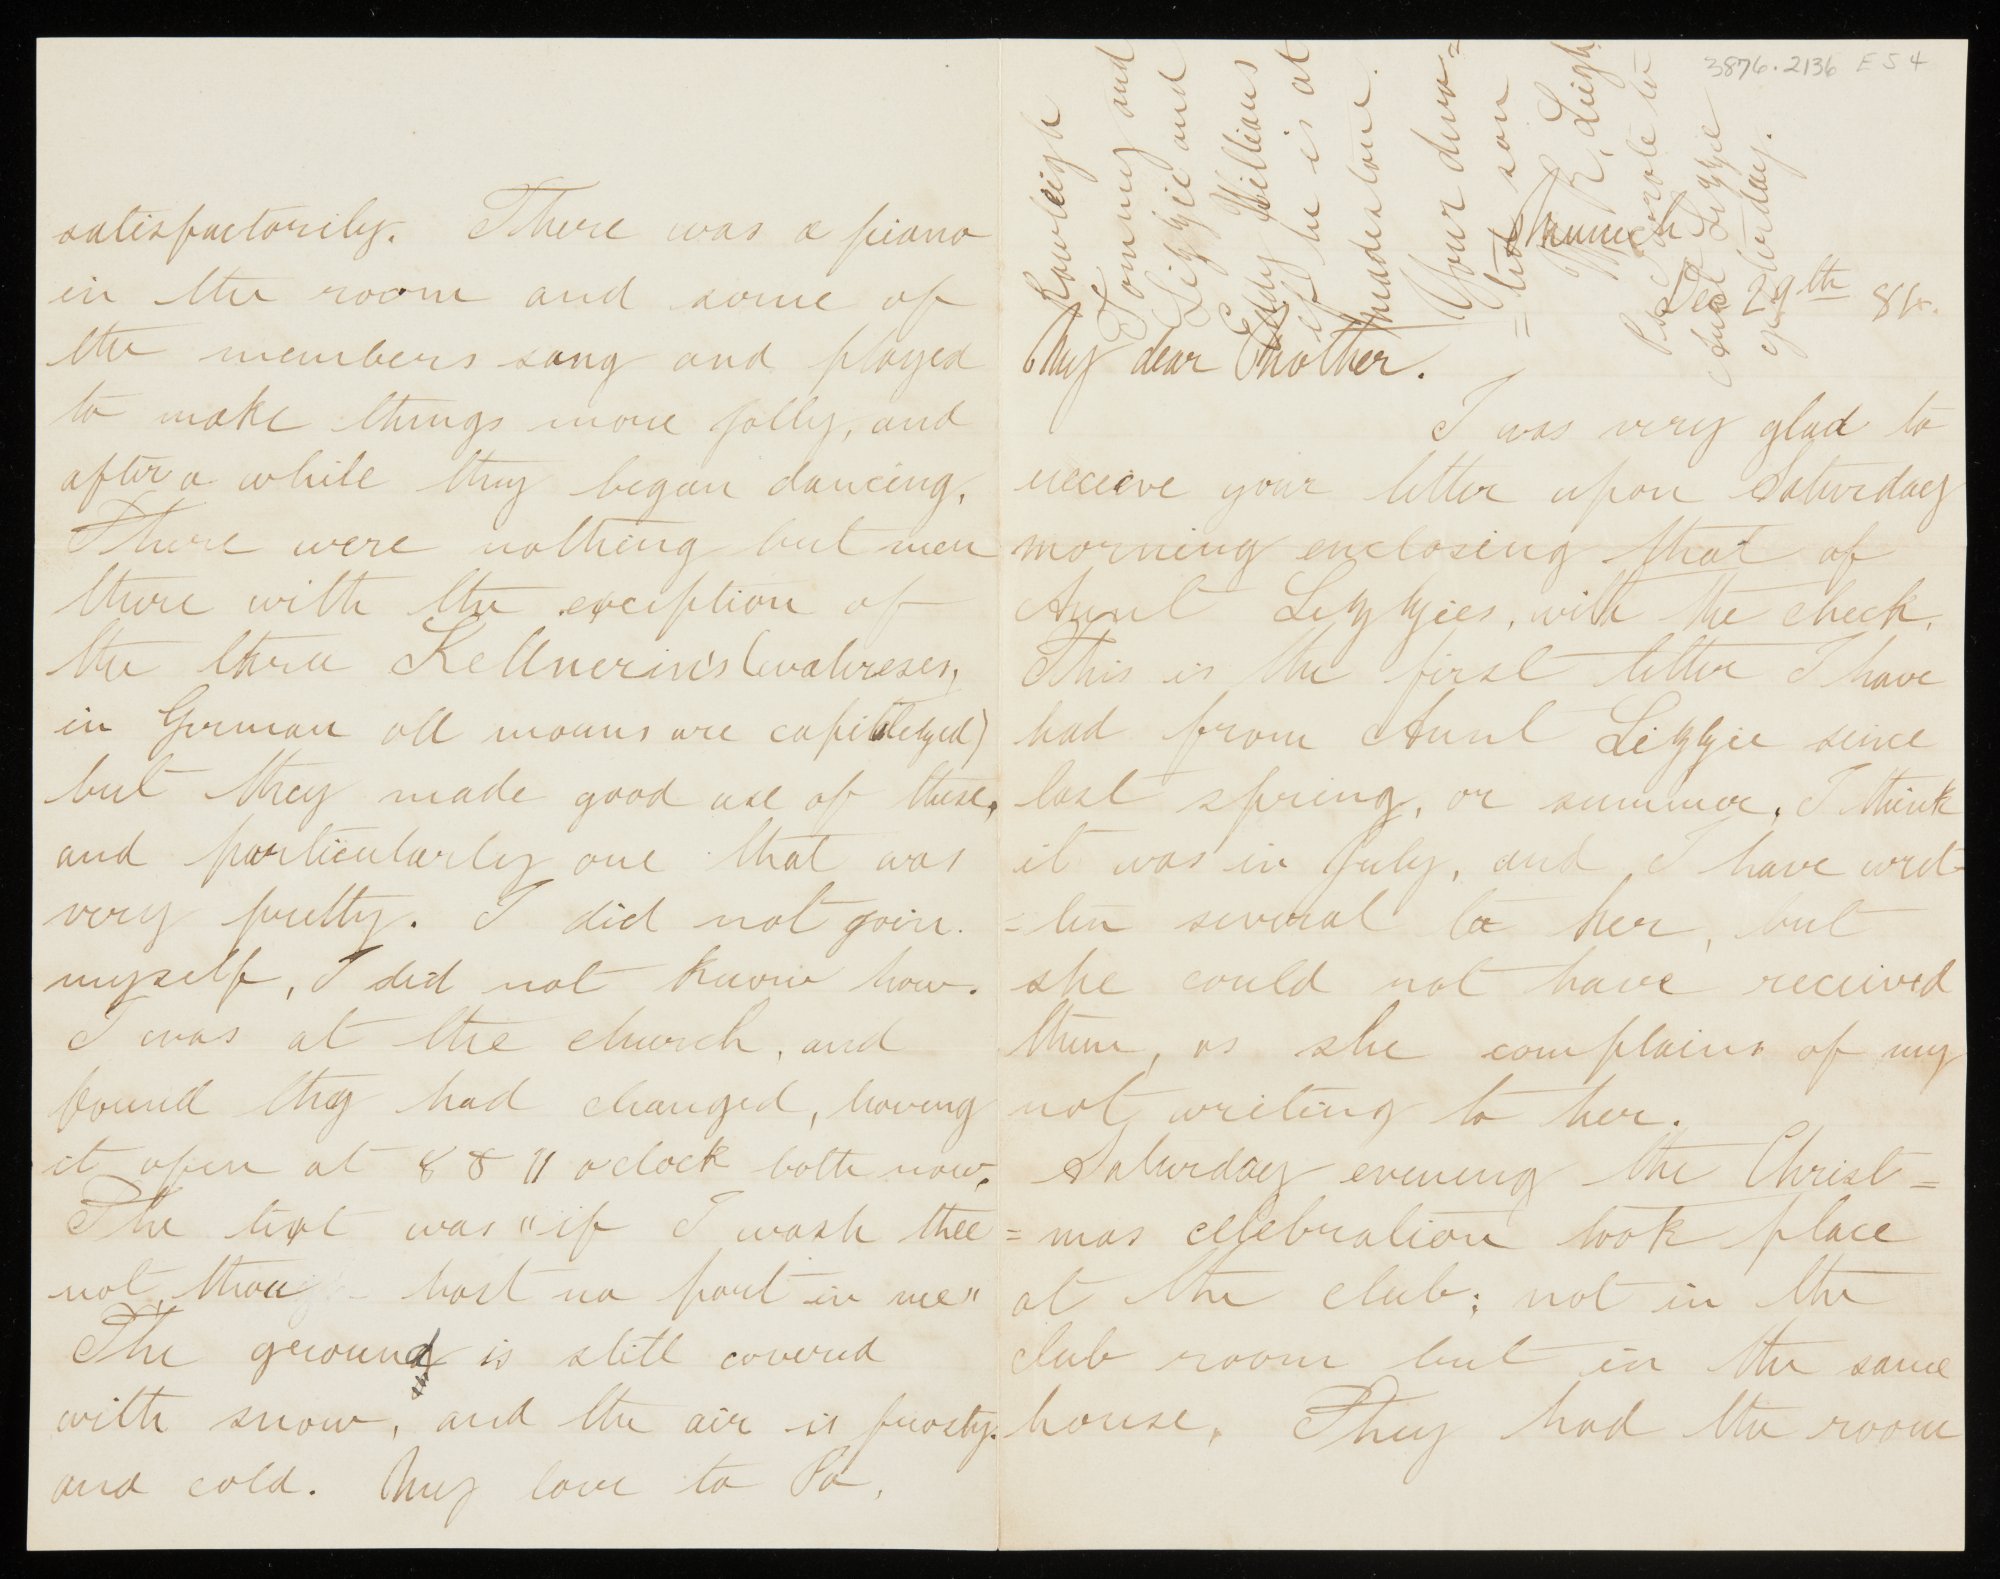 3876.2136 E54
Munich
Dec 29th 84.
My dear Mother.
I was very glad to
receive your letter upon Saturday
morning enclosing that of
Aunt Lizzies, with the check.
This is the first letter I have
had from Aunt Lizzie since
last spring, or summer. I think
it was in July, and I have writ-
=ten several to her, but
she could not have received
them, as she complains of my
not writing to her.
Saturday evening the Christ=
=mas celebration took place
at the club; not in the
club room but in the same
house. They had the room
satisfactorily. There was a piano
in the room and some of
the members sang and played
to make things more jolly, and
after a while they began dancing.
There were nothing but men
there with the exception of
the three Kellnerin's (watreses,
in German all nouns are capitledged)
but they made good use of these,
and particularly one that was
very pretty. I did not join
myself, I did not know how.
I was at the church, and
found they had changed, having
it open at 8 & 11 oclock both now.
The text was "if I wash thee
not, thou hast no part in me"
The ground is still covered
with snow, and the air is frosty
and cold. My love to Pa,
Rawleigh
Tommy and
Lizzie and
Eddy Willians
if he is at
maidestone.
Your devo=
=ted son
W. R. Leigh
P.S. I wrote to
Aunt Lizzie
yesturday.